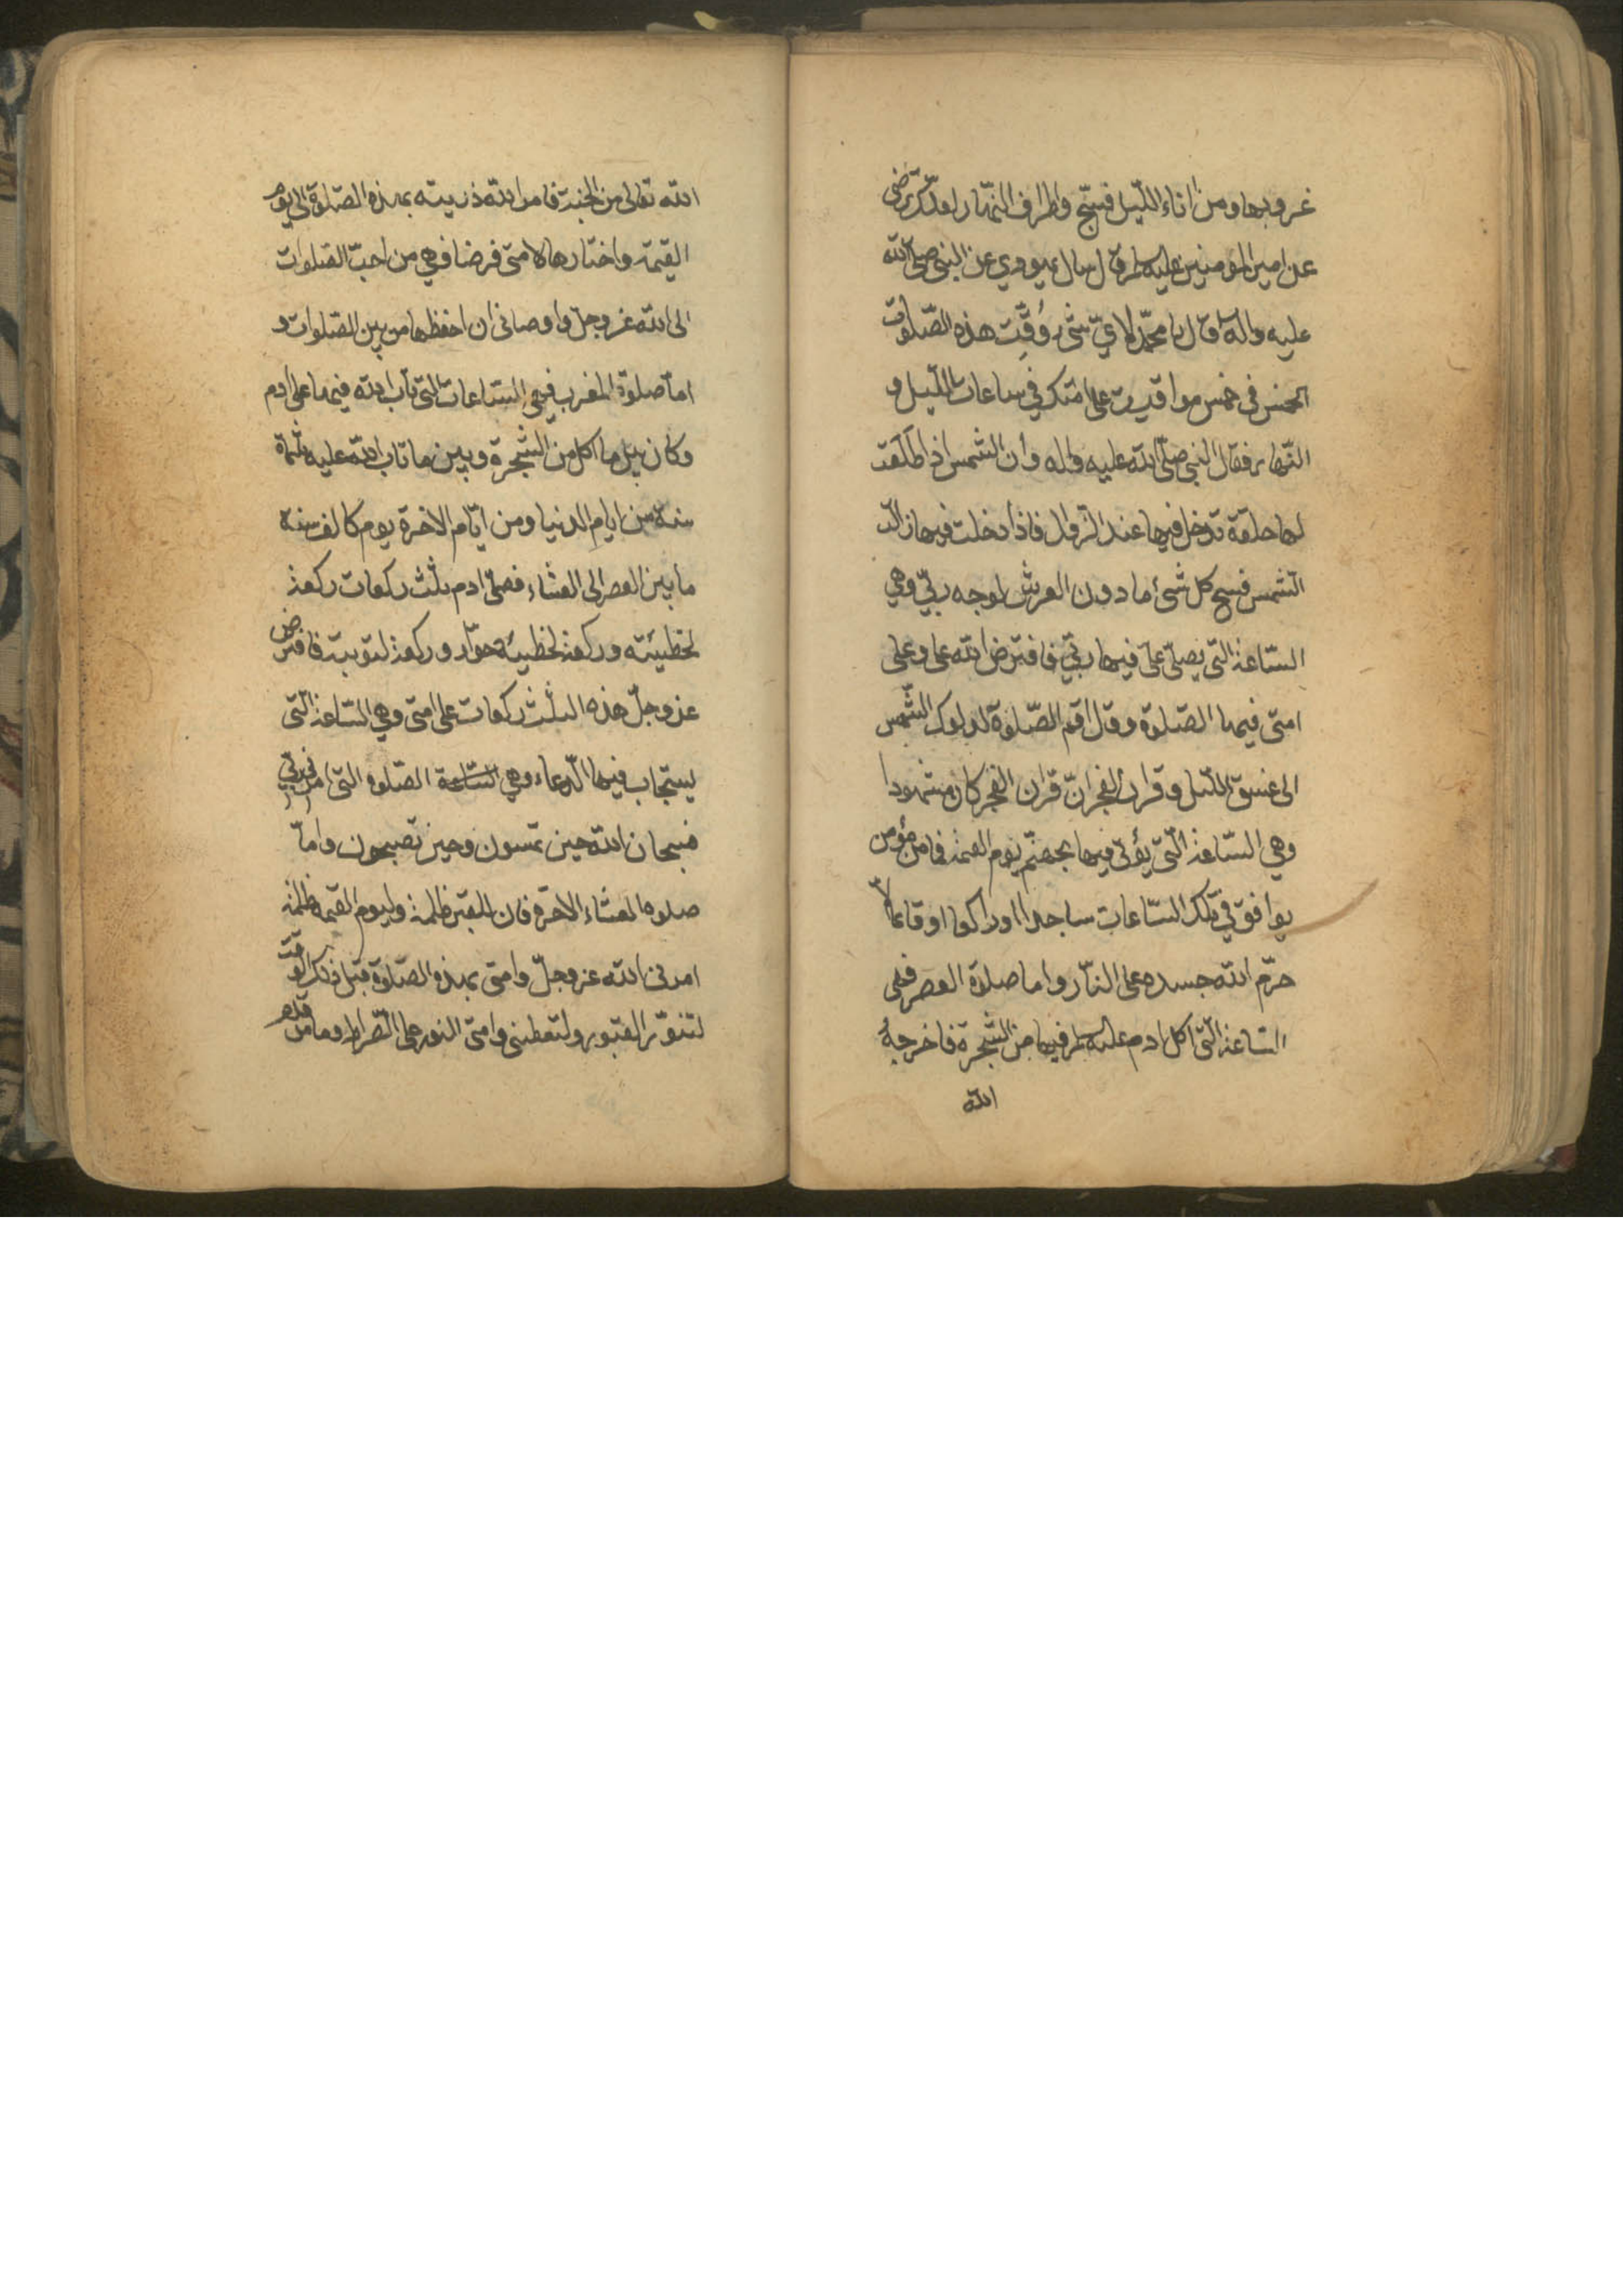 غروبها ومن اناء الليل فسبح واطراف النهار لعلك ترضى
عن امير المؤمنين عليه السلام قال سال يهودي عن النبي صلى الله
عليه واله وقال يا محمد لاي شئ وُقِّتت هذه الصلوات
الخمس في خمس مواقيت على امتك في ساعات الليل و
النهار فقال النبي صلى الله عليه واله وان الشمس اذا طلعت
لها حلقة تدخل فيها عند الزوال فاذا دخلت فيها زالت
الشمس فسبح كل شئ ما دون العرش لوجه ربي وهي
الساعة التي يصلي علي فيها ربي فافترض الله علي وعلى
امتي فيها الصلوة وقال اقم الصلوة لدلوك الشمس
الى غسق الليل وقران الفجر ان قران الفجر كان مشهودا
وهي الساعة التي يؤتى فيها بجهنم يوم القيمة فما من مؤمن
يوافق في تلك الساعات ساجدا او راكعا او قائما الا
حرم الله جسده على النار واما صلاة العصر فهي
الساعة التي اكل ادم عليه السلام فيها من الشجرة فاخرجه
الله
الله تعالى من الجنة فامر الله ذريته بهذه الصلوة الى يوم
القيمة واختارها لامتي فرضا فهي من احب الصلوات
الى الله عز وجل واوصاني ان احفظها من بين الصلوات و
اما صلوة المغرب فهي الساعات التي تاب الله فيها على ادم
وكان بين ما اكل من الشجرة وبين ما تاب الله عليه ثلثماة
سنة من ايام الدنيا ومن ايام الاخرة يوم كالف سنة
ما بين العصر الى العشاء فصلى ادم ثلث ركعات ركعة
لخطيئته وركعة لخطيئة حوا وركعة لتوبته فافترض
عز وجل هذه الثلث ركعات على امتي وهي الساعة التي
يستجاب فيها الدعاء وهي الساعة الصلوة التي امرني ربي
فسبحان الله حين تمسون وحين تصبحون واما
صلوة العشاء الاخرة فان للقبر ظلمة وليوم القيمة ظلمة
امرني الله عز وجل وامتي بهذه الصلوة قبل ذلك الوقت
لتنور القبور ولتعطيني وامتي النور على الصراط وما من قدم